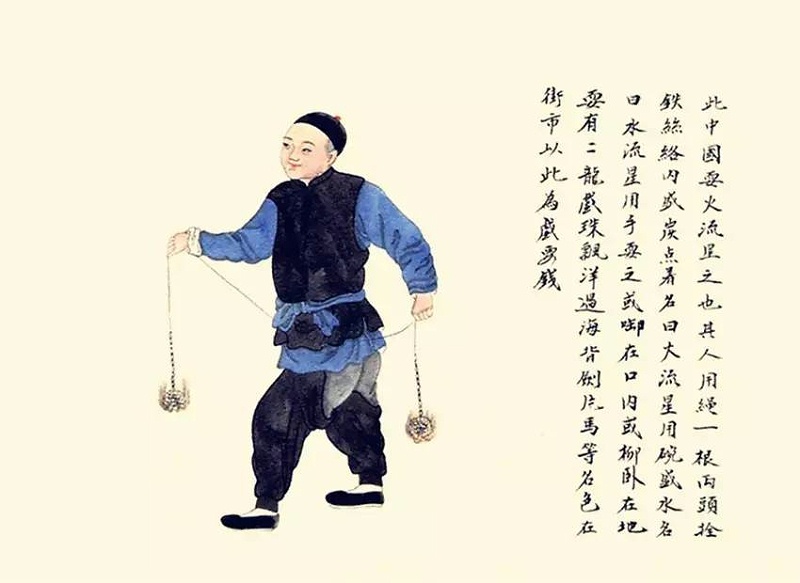 此中國耍火流星之也其人用繩一根両頭拴
鉄絲絡内或炭点着名曰火流星用碗盛水名
曰水流星用手耍之或啣在口内或柳卧在地
耍有二龍戲珠飄洋過海背劍片馬等名色在
街市以此為戲耍錢